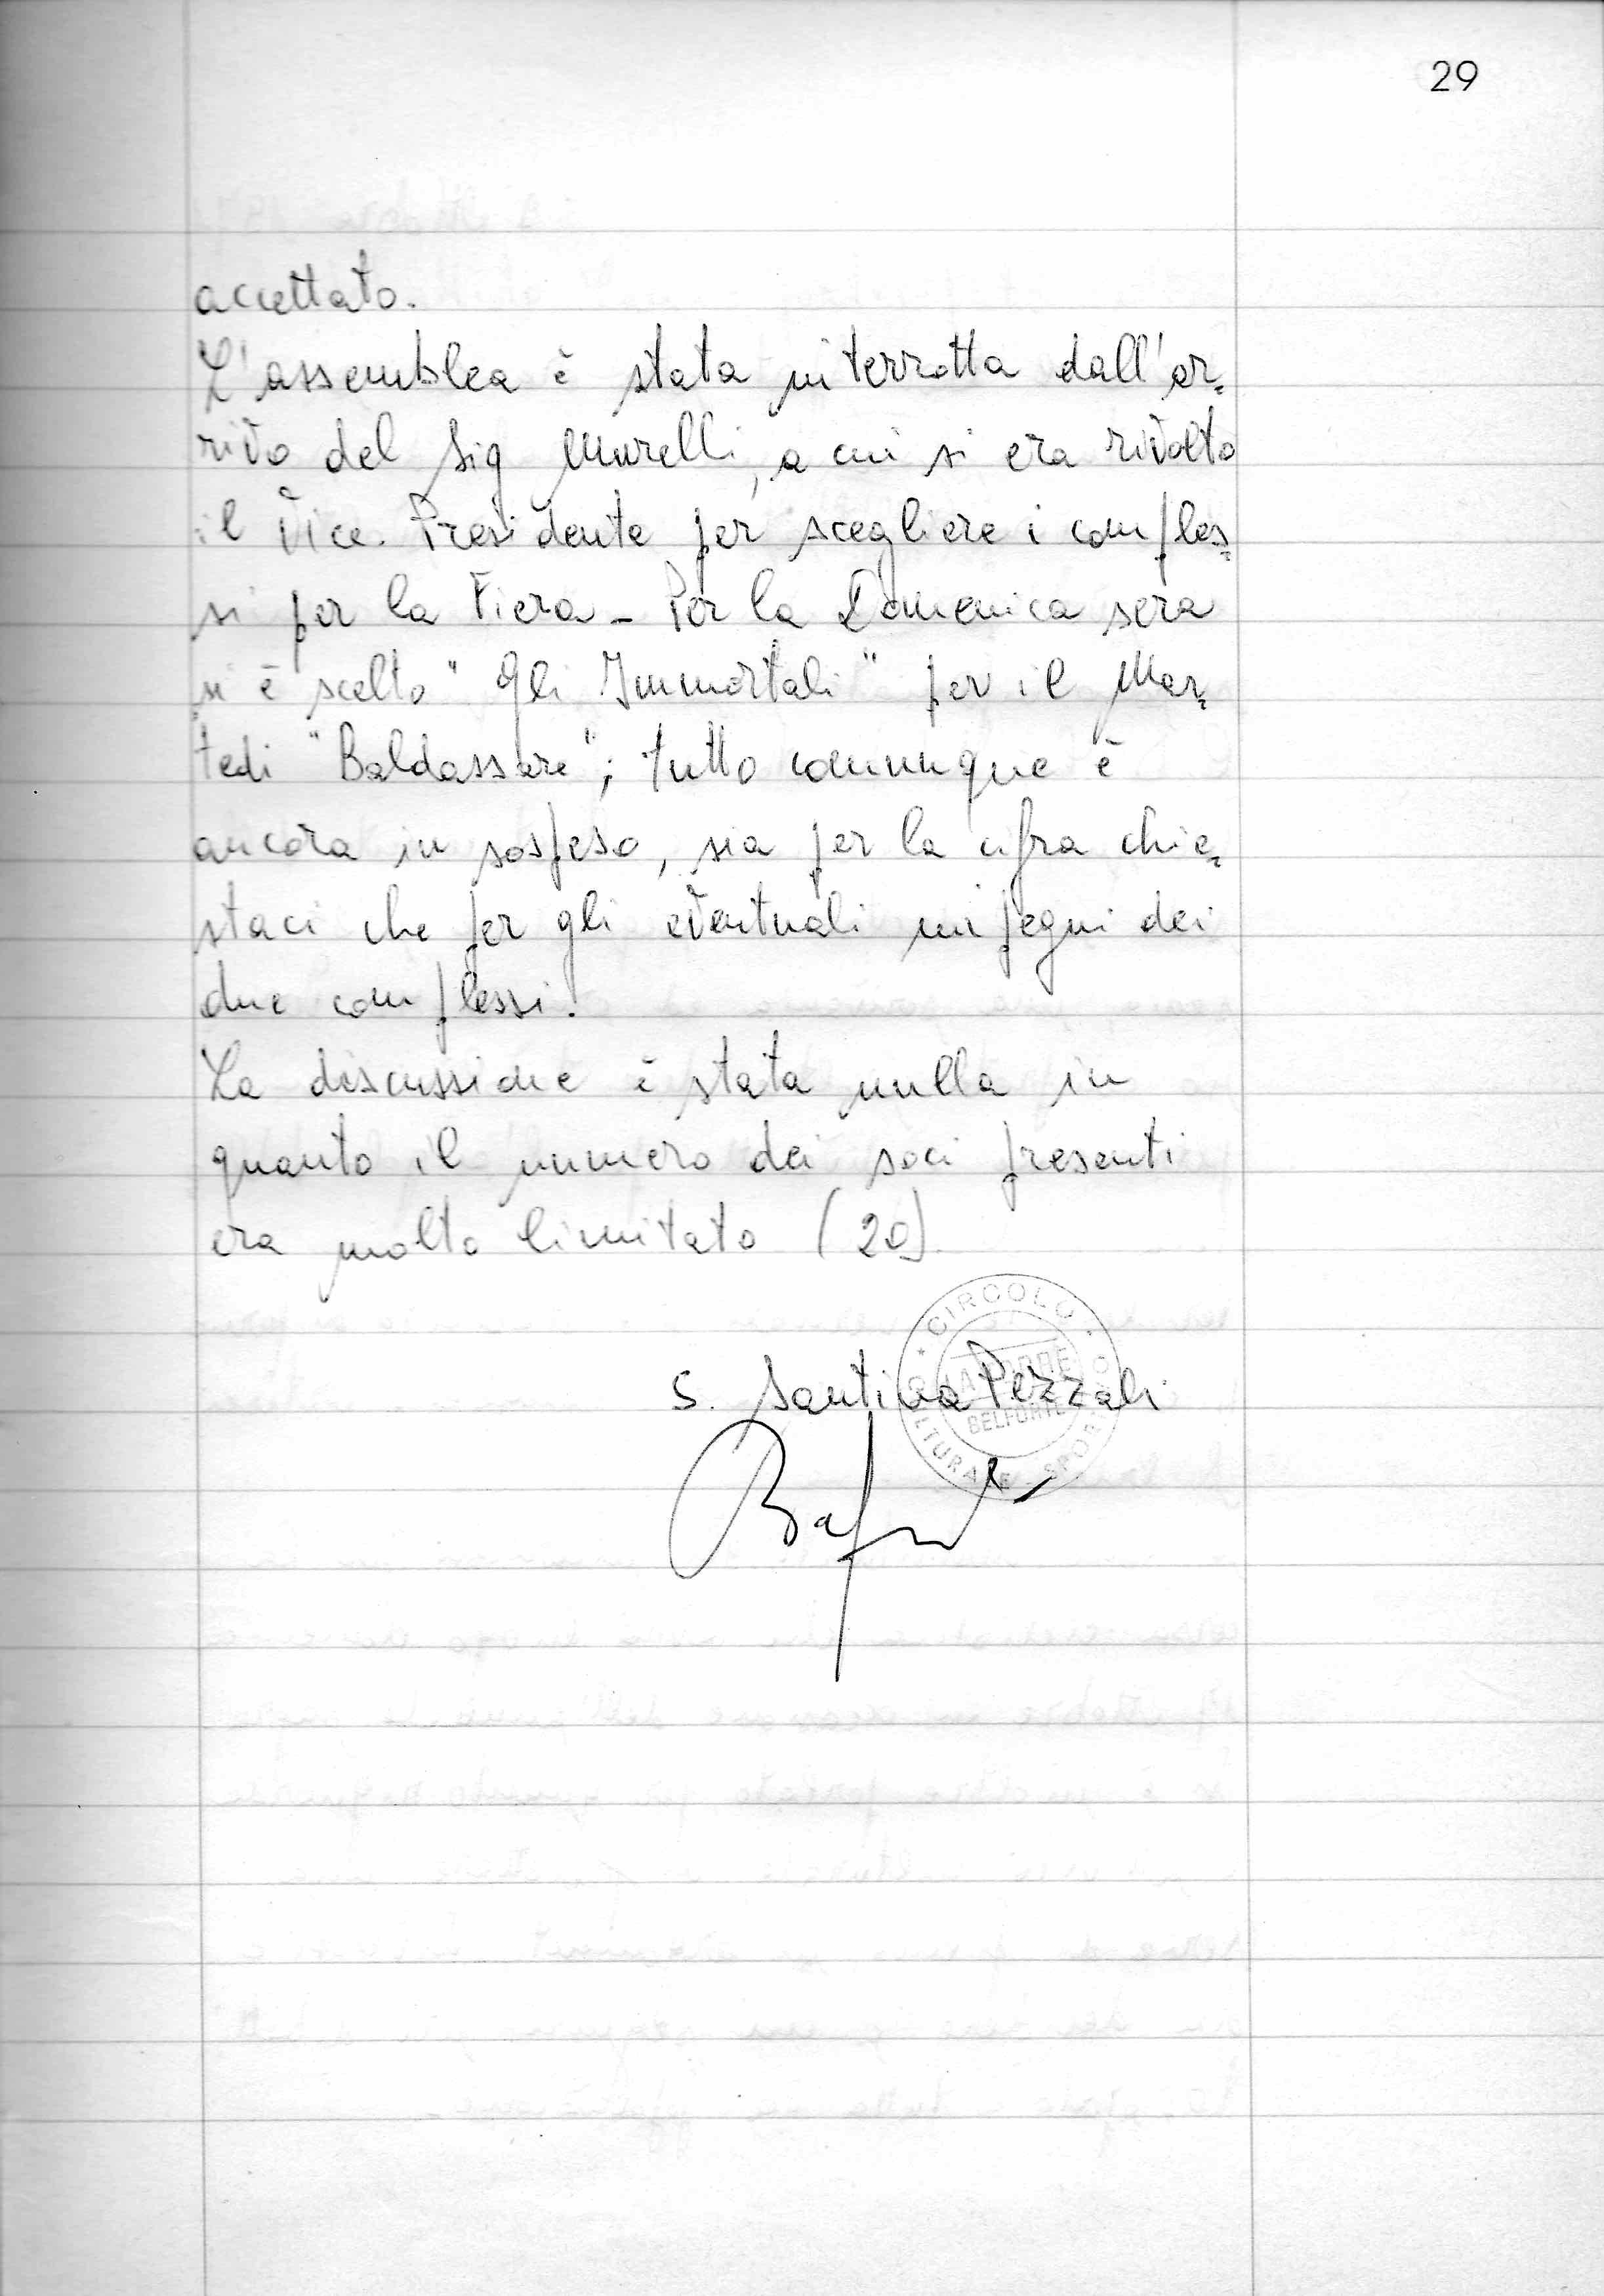 29
accettato.
L'assemblea è stata interrotta dall'ar-
rivo del Sig Murelli, a cui si era rivolto
il Vice. Presidente per scegliere i comples-
si per la Fiera - Per la Domenica sera
si è scelto "Gli Immortali" per il Mar-
tedi "Baldassare"; tutto comunque è
ancora in sospeso, sia per la cifra chie-
staci che per gli eventuali impegni dei
due complessi.
La discussione è stata nulla in
quanto il numero dei soci presenti
era molto limitato (20)
S. Santina Pezzali
CIRCOLO
BELFORTE